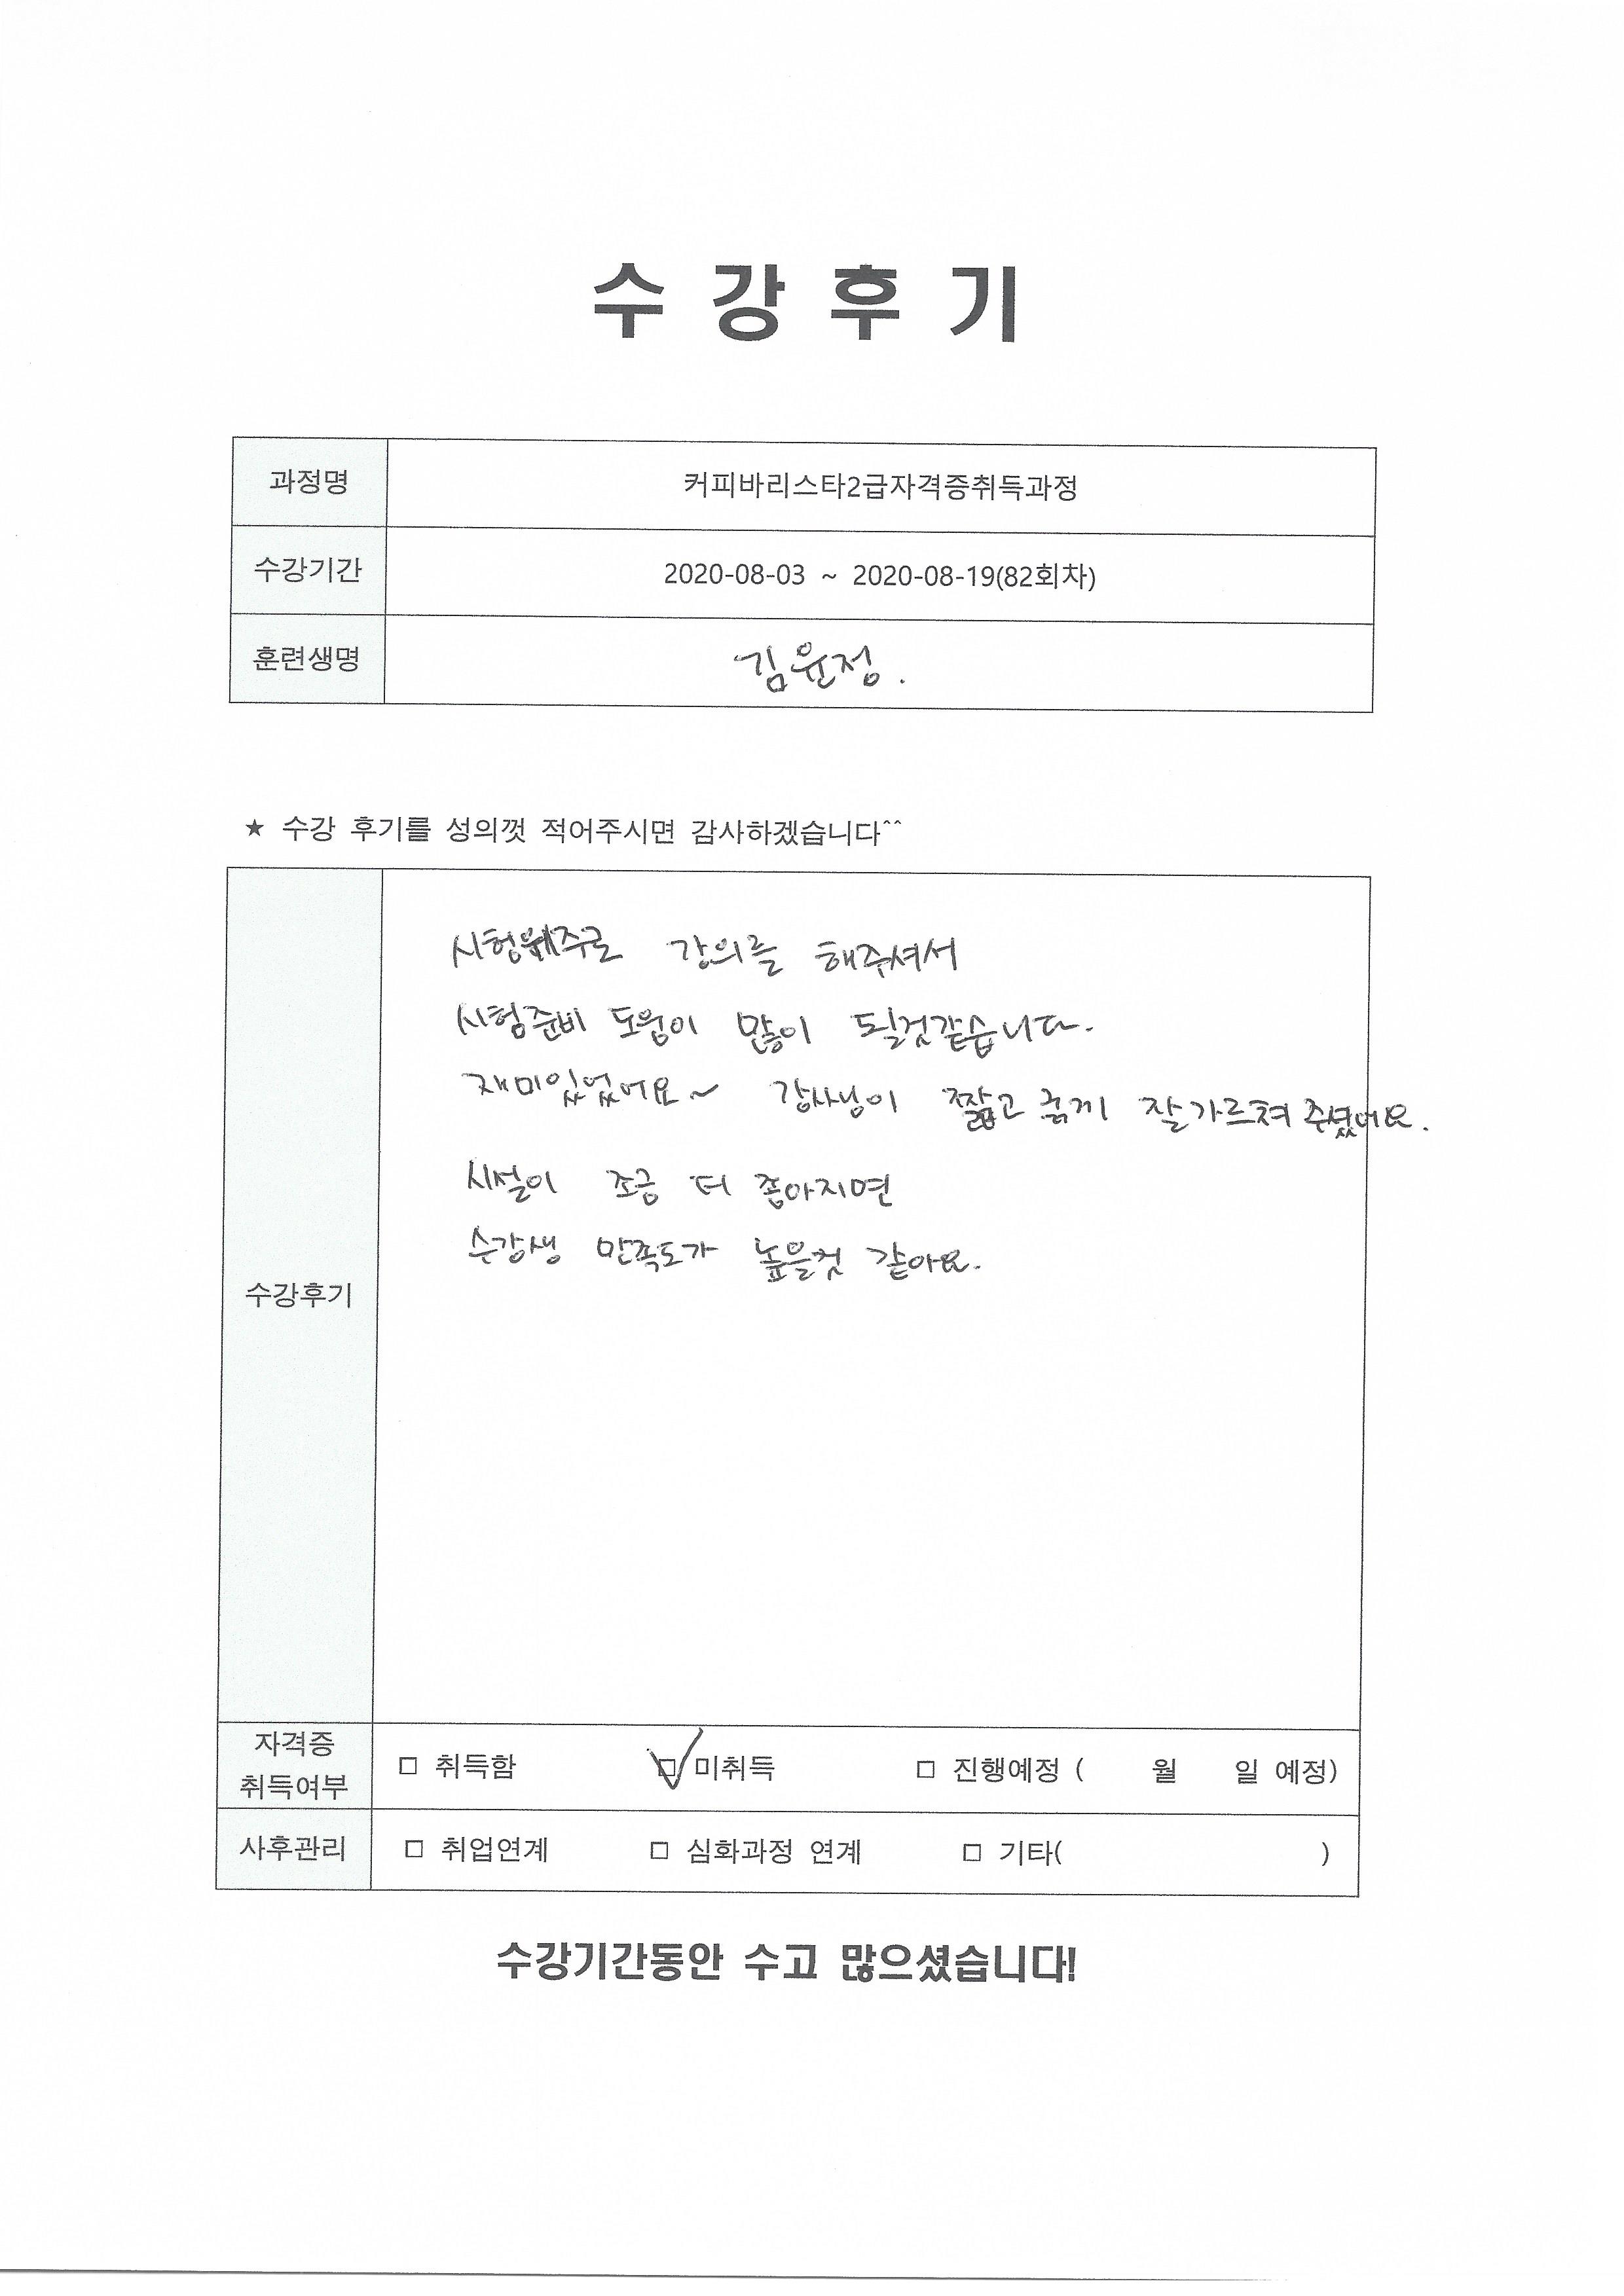 수 강 후 기
과정명 커피바리스타2급자격증취득과정
수강기간 2020-08-03 ~ 2020-08-19(82회차)
훈련생명 김윤정.
★ 수강 후기를 성의껏 적어주시면 감사하겠습니다^^
시험위주로 강의를 해주셔서
시험준비 도움이 많이 될것같습니다.
재미있었어요~ 강사님이 짧고 굵게 잘가르쳐 주셨어요.
시설이 조금 더 좋아지면
수강생 만족도가 높을것 같아요.
수강후기
자격증
취득여부 □ 취득함 □ 미취득 □ 진행예정 ( 월 일 예정)
사후관리 □ 취업연계 □ 심화과정 연계 □ 기타( )
수강기간동안 수고 많으셨습니다!